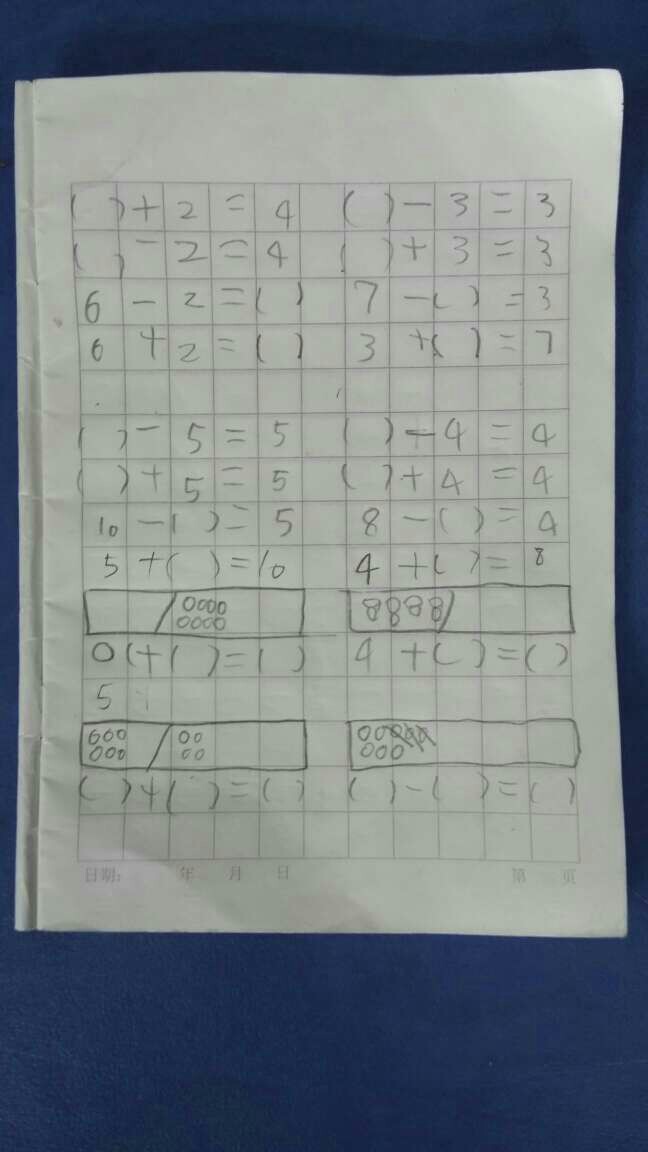 ( ) + 2 = 4 ( ) - 3 = 3
( ) - 2 = 4 ( ) + 3 = 3
6 - 2 = ( ) 7 - ( ) = 3
6 + 2 = ( ) 3 + ( ) = 7
( ) - 5 = 5 ( ) - 4 = 4
( ) + 5 = 5 ( ) + 4 = 4
10 - ( ) = 5 8 - ( ) = 4
5 + ( ) = 10 4 + ( ) = 8
0 + ( ) = ( ) 4 + ( ) = ( )
5
( ) + ( ) = ( ) ( ) - ( ) = ( )
日期: 年 月 日 第 页